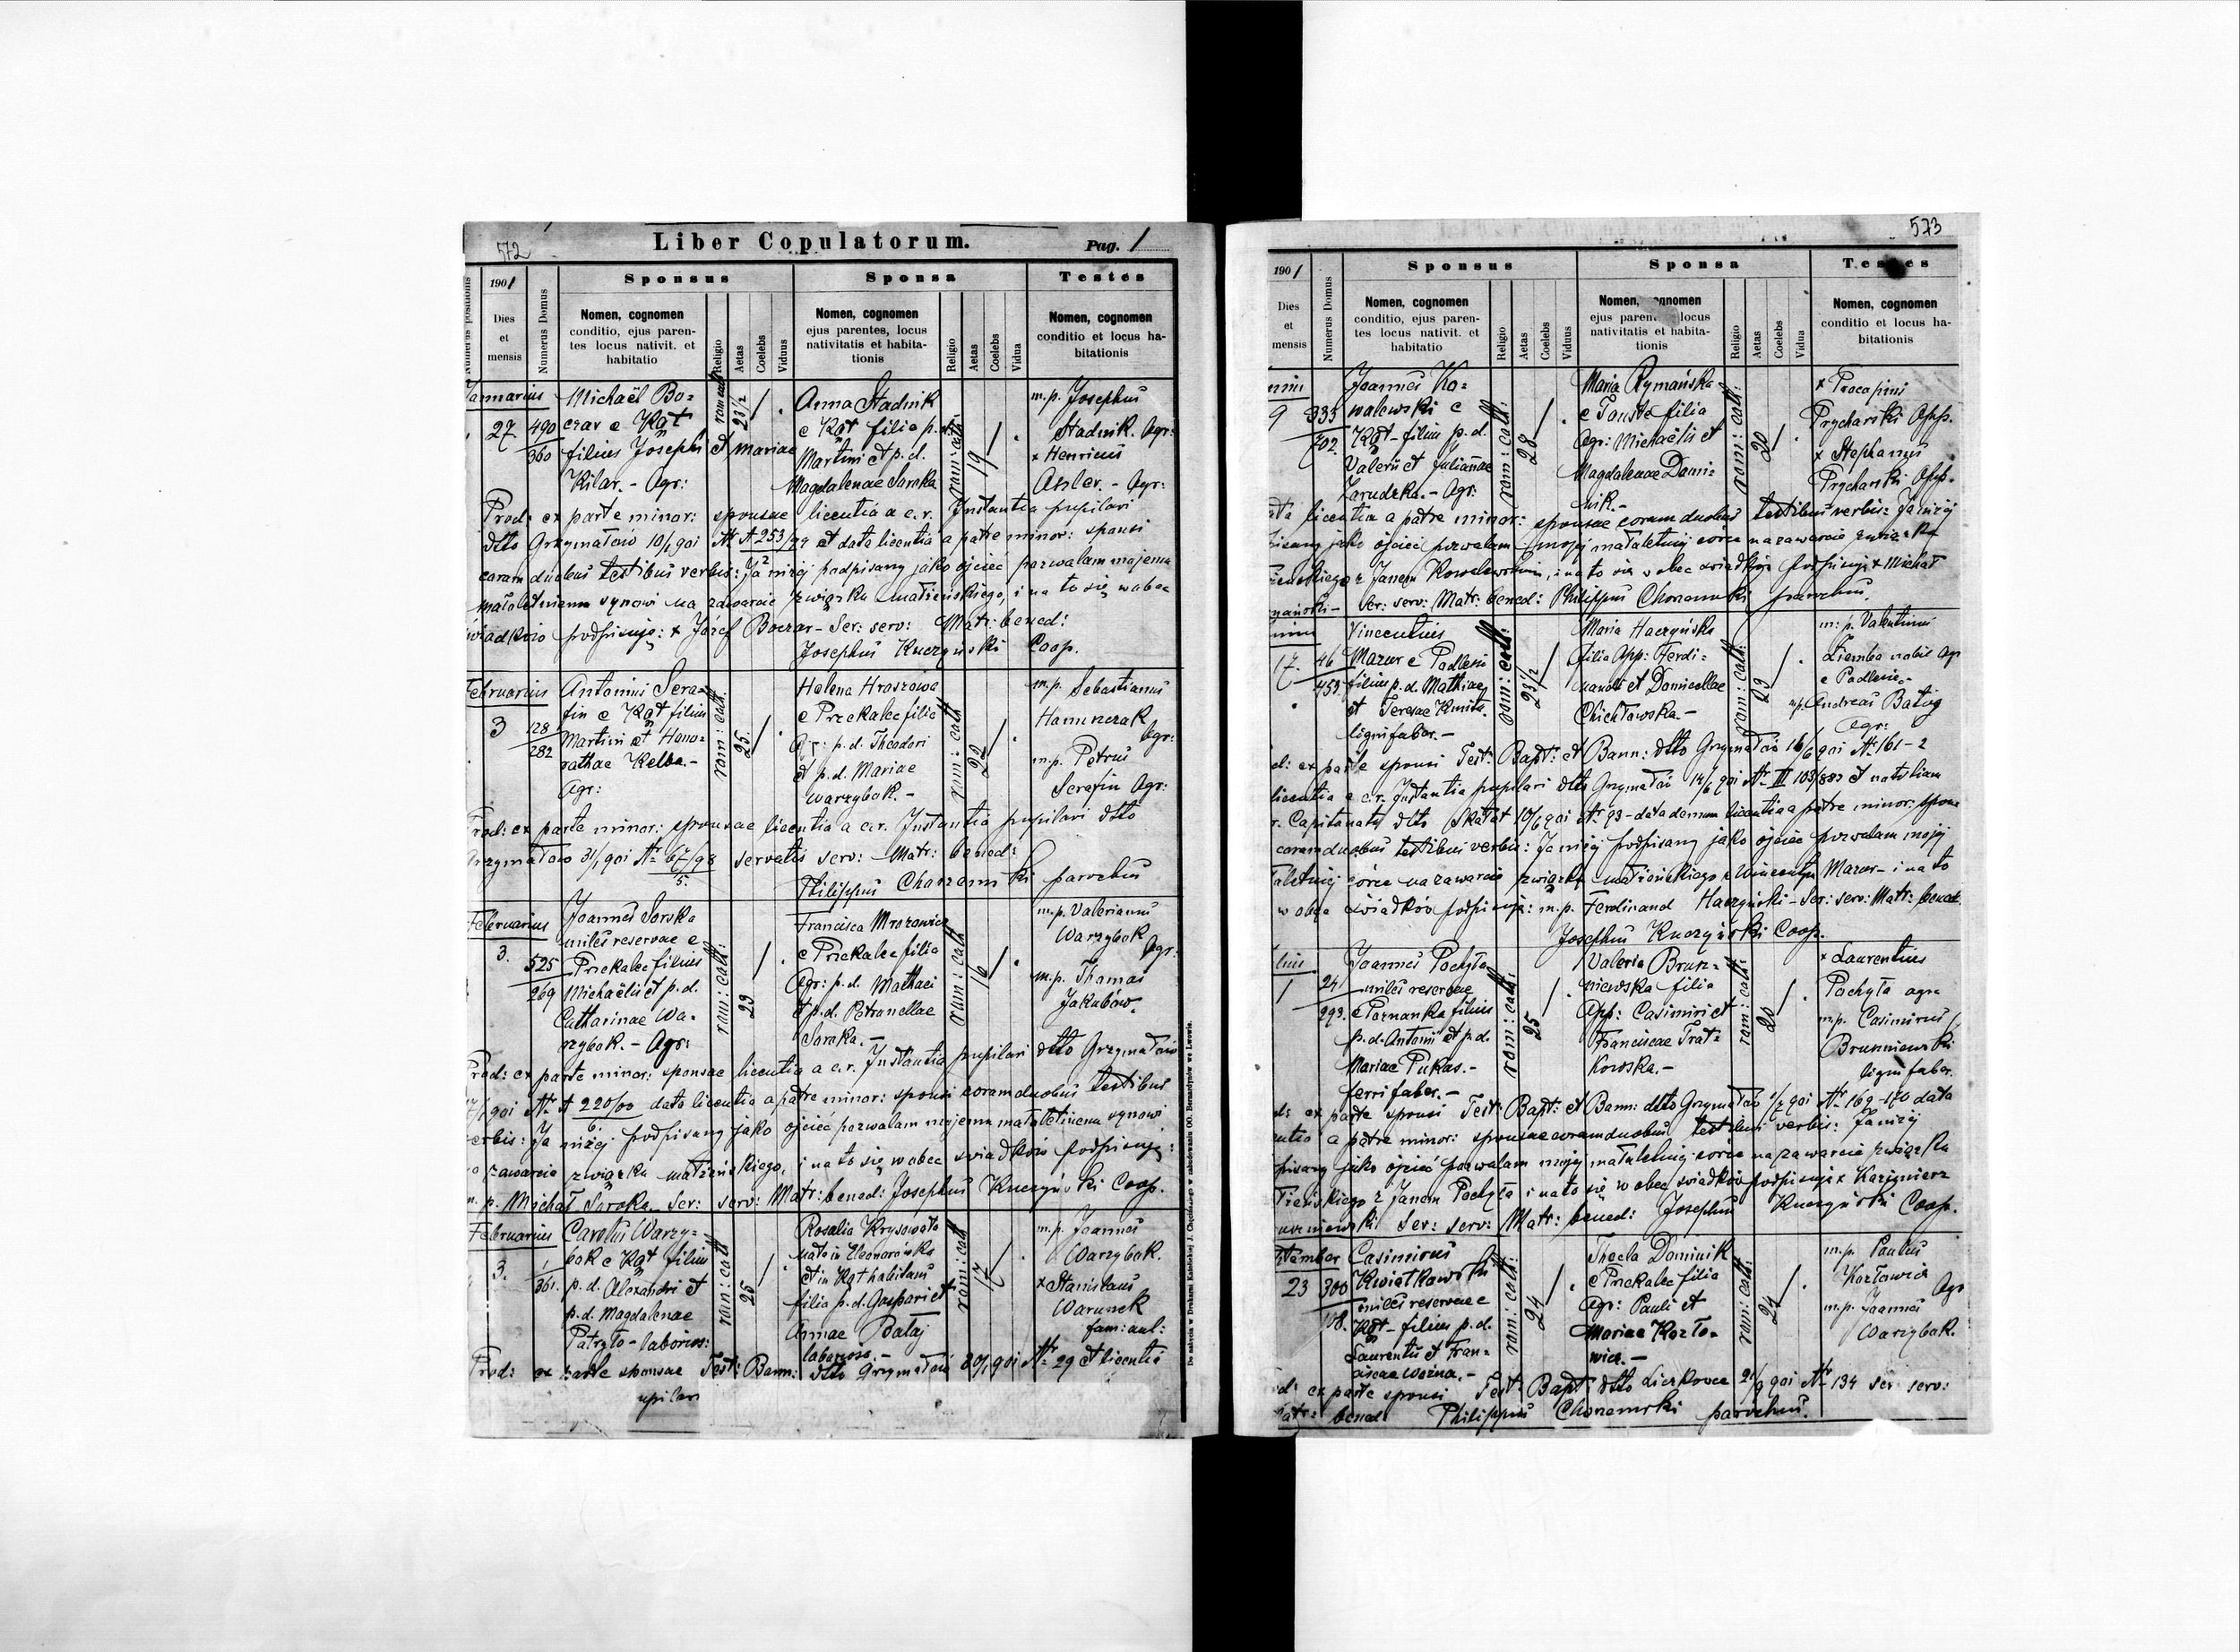 572
Liber Copulatorum.
Pag. 1
Numerus positionis
1901
Dies et mensis
Numerus Domus
Sponsus
Nomen, cognomen
conditio, ejus paren-
tes locus nativit. et
habitatio
Religio
Aetas
Coelebs
Viduus
Sponsa
Nomen, cognomen
ejus parentes, locus
nativitatis et habita-
tionis
Religio
Aetas
Coelebs
Vidua
Testes
Nomen, cognomen
conditio et locus ha-
bitationis
Januarius
27
490
360
Michaël Bo=
czar e Kąt
filius Josephi et Mariae
Kilar. - Agr:
rom: cath:
23 1/2
Anna Stadnik
e Kąt filia p. d.
Martini et p. d.
Magdalenae Soroka
rom: cath:
19
m.p. Josephus
Stadnik. Agr:
x Henricus
Agr:
Prod: ex parte minor: sponsae licentia a c.r. Instantia pupilari
dtto Grzymałów 10/1 901 Nr A 253/99 et data licentia a patre minor: sponsi
2
coram duobus testibus verbis: Ja niżej podpisany jako ojciec pozwalam mojemu
małoletniemu synowi na zawarcie związku małżeńskiego, i na to się wobec
świadków podpisuję: x Józef Boczar - Ser: serv: Matr: bened:
Josephus Kuczyński Coop.
Februarius
3
128
282
Antonius Sera-
fin e Kąt filius
Martini et Hono=
rathae Kelba.-
Agr:
rom: cath.
25
Helena Hroszowa
e Przekalec filia
Agr: p.d. Theodori
et p.d. Mariae
Warzybok. -
rom: cath
22
m.p. Sebastianus
Agr:
m.p. Petrus
Serafin Agr:
Prod: ex parte minor: sponsae licentia a c.r. Instantia pupilari dtto
Grzymałów 31/1 901 Nr 67/98 servatis serv: Matr: bened:
5.
Philippus parochus
Februarius
3.
525
269
Joannes Soroka
miles reservae e
Przekalec filius
Michaëlis et p.d.
Catharinae Wa-
rzybok. - Agr:
rom: cath:
23
Francisca Mrozowicz
e Przekalec filia
Agr: p.d. Mathaei
et p.d. Petronellae
Soroka. -
rom: cath
16
m.p. Valerianus
Warzybok
Agr:
m.p. Thomas
Jakubów.
Prod: ex parte minor: sponsae licentia a c.r. Instantia pupilari dtto Grzymałów
/1 901 Nr A 220/00 data licentia a patre minor: sponsi coram duobus testibus
6.
verbis: Ja niżej podpisany jako ojciec pozwalam mojemu małoletniemu synowi
zawarcie związku małżeńskiego, i na to się wobec świadków podpisuję:
m. p. Michał Soroka. Ser: serv: Matr: bened: Josephus Kuczyński Coop.
Februarius
3.
1
361.
Carolus Warzy-
bok e Kąt filius
p.d. Alexandri et
p.d. Magdalenae
Patryło - laborios:
rom: cath
25
Rosalia Krysowata
nata in Eleonorówka
et in Kąt habitans
filia p.d. Gaspari et
Annae Bataj
laborioso. -
rom: cath
17
m.p. Joannes
Warzybok.
x Stanislaus
Warunek
fam: aul:
Prod: ex parte sponsae Test: Bann: dtto Grzymałów 20/1 901 Nr 29 et licentia
upilari
De nabycia w Drukarni Katolickiej J. Chęcińskiego w zabudowaniu OO. Bernardynów we Lwowie.
573
1901
Dies et mensis
Numerus Domus
Sponsus
Nomen, cognomen
conditio, ejus paren-
tes locus nativit. et
habitatio
Religio
Aetas
Coelebs
Viduus
Sponsa
Nomen, cognomen
locus
nativitatis et habita-
tionis
Religio
Aetas
Coelebs
Vidua
Testes
Nomen, cognomen
conditio et locus ha-
bitationis
9
335
702.
Joannes Ko=
walewski e
Kąt - filius p.d.
Valerii et Julianae
Zarudzka. - Agr:
rom: cath:
28
Maria Rymańska
e Touste filia
Agr: Michaëlis et
Magdalenae Domi-
nik. -
rom: cath:
20
x Procopius
Prycharski Opp.
x Stephanus
Prycharski Opp.
licentia a patre minor: sponsae coram duobus testibus verbis: Ja niżej
jako ojciec pozwalam mojej małoletniej córce na zawarcie związku
z Janem Kowalewskim, i na to się wobec świadków podpisuję x Michał
Ser: serv: Matr: bened: Philippus parochus.
17.
46
453.
Vincentius
Mazur e Podlesie
filius p.d. Mathiae
et Teresae Kmita.
lignifaber. -
rom: cath:
23 1/2
Maria Haczyńska
filia Opp: Ferdi=
nandi et Domicellae
Chichłowska -
rom: cath:
23
m: p. Valentinus
Ziemba nobil Agr
e Podlesie. -
m.p. Andreas Batóg
Agr:
ex parte sponsi Test: Bapt: et Bann: dtto Grzymałów 16/6 901 Nr 161-2
licentia a c.r. Instantia pupilari dtto Grzymałów 14/6 901 Nr III 103/883 et
Capitanatu dtto Skałat 10/6 901 Nr 93 - data demum licentia a patre minor: sponsae
coram duobus testibus verbis: Ja niżej podpisany jako ojciec pozwalam mojej
córce na zawarcie związku małżeńskiego z Wincentym Mazur - i na to
wobec świadków podpisuję: m.p. Ferdinand Haczyński - Ser: serv: Matr: bened.
Josephus Kuczyński Coop.
1
24
293.
Joannes Pochyła
miles reservae
e Poznanka filius
p.d. Antonii et p.d.
Mariae Pukas. -
ferrifaber. -
rom: cath:
25
Valeria Brun=
niewska filia
Opp: Casimiri et
Franciscae Trat=
kowska. -
rom: cath:
20
x Laurentius
Pochyła agr.
m.p. Casimirus
Brunniewski
lignifaber.
ex parte sponsi Test: Bapt: et Bann: dtto Grzymałów 1/7 901 Nr 169-170 data
a patre minor: sponsae coram duobus testibus verbis: Ja niżej
jako ojciec pozwalam mojej małoletniej córce na zawarcie związku
z Janem Pochyła i na to się wobec świadków podpisuję x Kazimierz
Ser: serv: Matr: bened: Josephus Kuczyński Coop.
23
300
Casimirus
Kwiatkowski
miles reservae e
Kąt - filius p.d.
Laurentii et Fran=
ciscae Woźna. -
rom: cath:
24
Thecla Dominik
e Przekalec filia
Agr: Pauli et
Mariae Kozło-
wicz. -
rom: cath:
24
m.p. Paulus
Kozłowicz
Agr
m.p. Joannes
Warzybok.
ex parte sponsi Test: Bapt: dtto Liczkowce 21/9 901 Nr 134 ser: serv:
Matr: bened Philippus parochus.